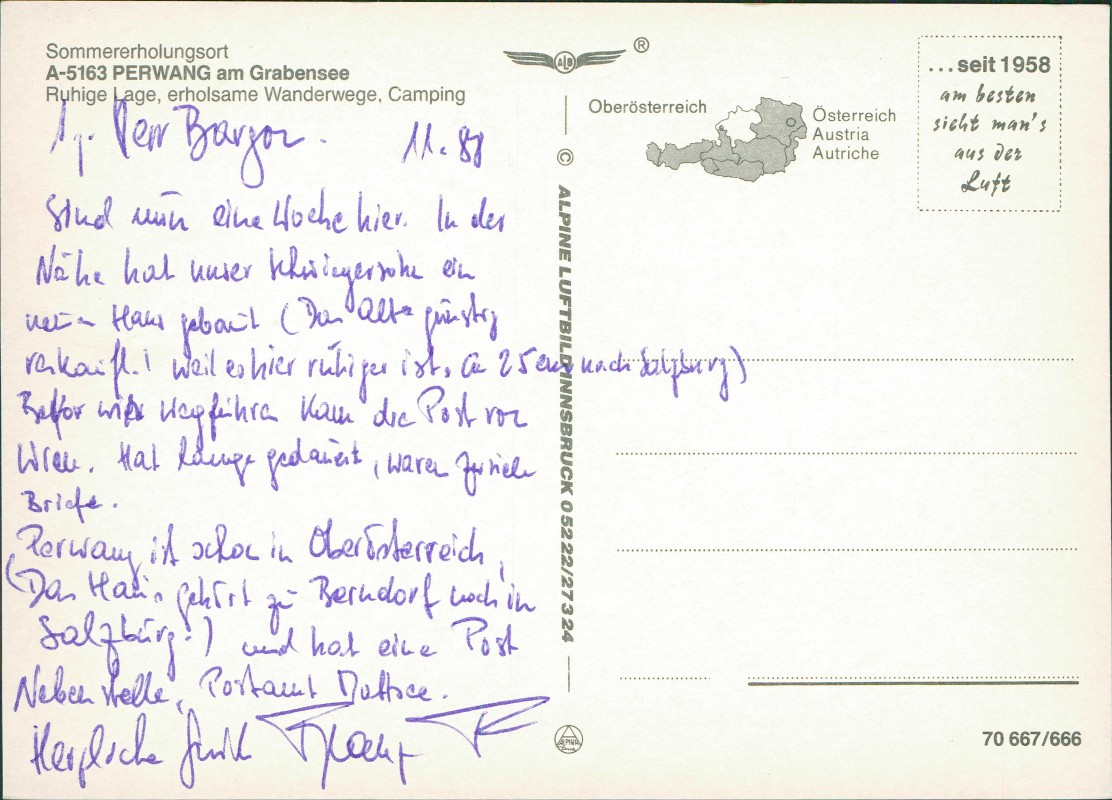 Sommererholungsort
A-5163 PERWANG am Grabensee
Ruhige Lage, erholsame Wanderwege, Camping
Herr
11.88
Sind nun eine Woche hier. In der
Nähe hat unser Schwiegersohn ein
neues Haus gebaut (Das Alte günstig
verkauft.! weil es hier ruhiger ist. Ca 25 nach Salzburg)
Befor wir wegfuhren kam die Post von
Wien. Hat lange gedauert, waren
Briefe.
Perwang ist schon in Oberösterreich,
(Das Haus gehört zu Berndorf noch in
Salzburg!) und hat eine Post
Nebenstelle, Postamt Mattsee.
Herzliche
ALB
®
Oberösterreich
Österreich
Austria
Autriche
...seit 1958
am besten
sieht man's
aus der
Luft
© ALPINE LUFTBILD INNSBRUCK 0 52 22/2 73 24
ALPINE
70 667/666